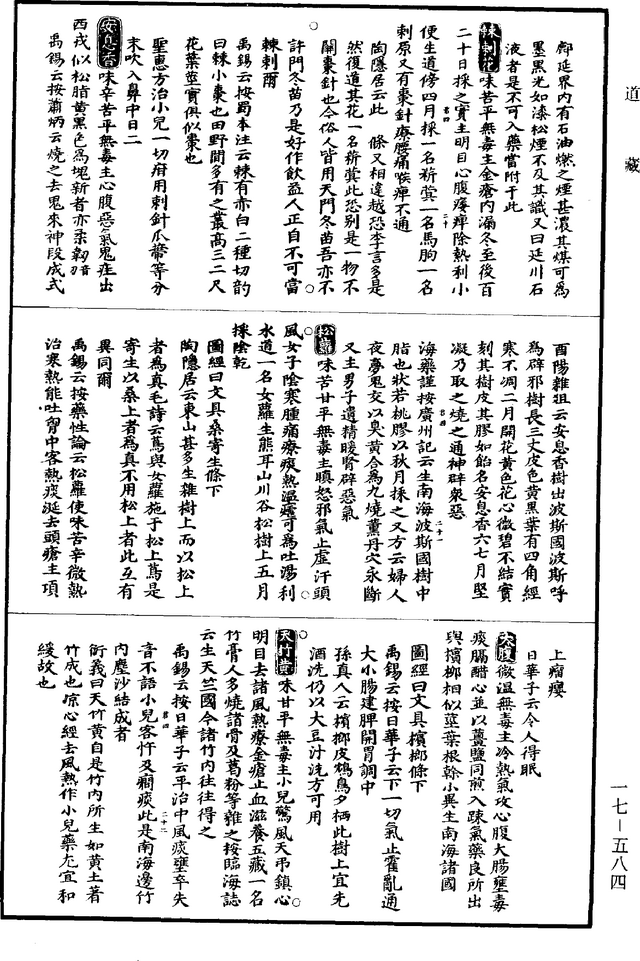 道藏
鄜延界内有石油燃之煙甚濃其煤可爲
墨黑光如漆松煙不及其識又曰延川石
液者是不可入藥當附于此
棘刺花味苦平無毒主金瘡内漏冬至後百
二十日採之實主明目心腹痿痺除熱利小
便生道傍四月採一名菥蓂一名馬朐一名
刺原又有棗針療腰痛喉痺不通
陶隱居云此 條又相違越恐李言多是
然復道其花一名菥蓂此恐别是一物不
關棗針也今俗人皆用天門冬苗吾亦不
許門冬苗乃是好作飲益人正自不可當
棘刺爾
禹錫云按蜀本注云棘有赤白二種切韵
曰棘小棗也田野間多有之叢高三二尺
花葉莖實俱似棗也
聖惠方治小兒一切疳用刺針瓜蔕等分
末吹入鼻中日二
安息香味辛苦平無毒主心腹惡氣鬼疰出
西戎似松脂黄黑色爲塊新者亦柔韌音
禹錫云按蕭炳云燒之去鬼來神段成式
酉陽雜俎云安息香樹出波斯國波斯呼
爲辟邪樹長三丈皮色黄黑葉有四角經
寒不凋二月開花黄色花心微碧不結實
刻其樹皮其膠如飴名安息香六七月堅
凝乃取之燒之通神辟衆惡
海藥謹按廣州記云生南海波斯國樹中
脂也狀若桃膠以秋月採之又方云婦人
夜夢鬼交以臭黄合爲丸燒薰丹穴永斷
又主男子遺精暖腎辟惡氣
松蘿味苦甘平無毒主瞋怒邪氣止虚汗頭
風女子陰寒腫痛療痰熱温瘧可爲吐湯利
水道一名女蘿生熊耳山川谷松樹上五月
採陰乾
圖經曰文具桑寄生條下
陶隱居云東山甚多生雜樹上而以松上
者爲真毛詩云蔦與女蘿施于松上蔦是
寄生以桑上者爲真不用松上者此互有
異同爾
禹錫云按藥性論云松蘿使味苦辛微熱
治寒熱能吐胷中客熱痰涎去頭瘡主項
上瘤癭
日華子云令人得眠
大腹微温無毒主冷熱氣攻心腹大腸壅毒
痰膈醋心並以薑鹽同煎入踈氣藥良所出
與檳榔相似莖葉根幹小異生南海諸國
圖經曰文具檳榔條下
禹錫云按日華子云下一切氣止霍亂通
大小腸建脾開胃調中
孫真人云檳榔皮鴆鳥多栖此樹上宜先
酒洗仍以大豆汁洗方可用
天竹黄味甘平無毒主小兒驚風天弔鎮心
明目去諸風熱療金瘡止血滋養五藏一名
竹膏人多燒諸骨及葛粉等雜之按臨海誌
云生天竺國今諸竹内往往得之
禹錫云按日華子云平治中風痰壅卒失
音不語小兒客忤及癎痰此是南海邊竹
内塵沙結成者
衍義曰天竹黄自是竹内所生如黄土著
竹成也凉心經去風熱作小兒藥尤宜和
緩故也
一七－五八四